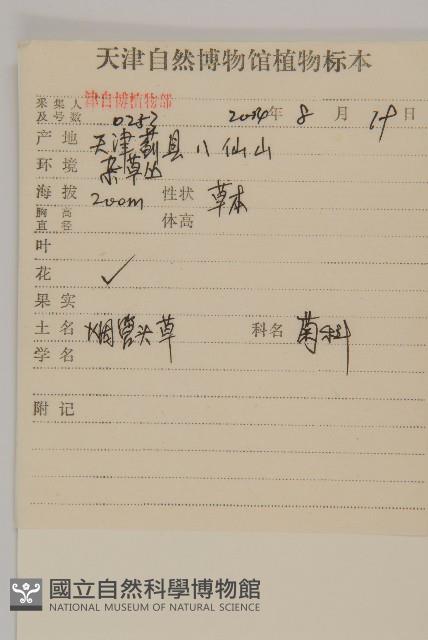 天津自然博物馆植物标本
采集人及号数 津自博植物部 0253 2004年 8月 19日
产地 天津蓟县八仙山
环境 杂草丛
海拔 200m 性状 草本
胸高直径 体高
叶
花 ✓
果实
土名 烟管头草 科名 菊科
学名
附记
國立自然科學博物館
NATIONAL MUSEUM OF NATURAL SCIENCE